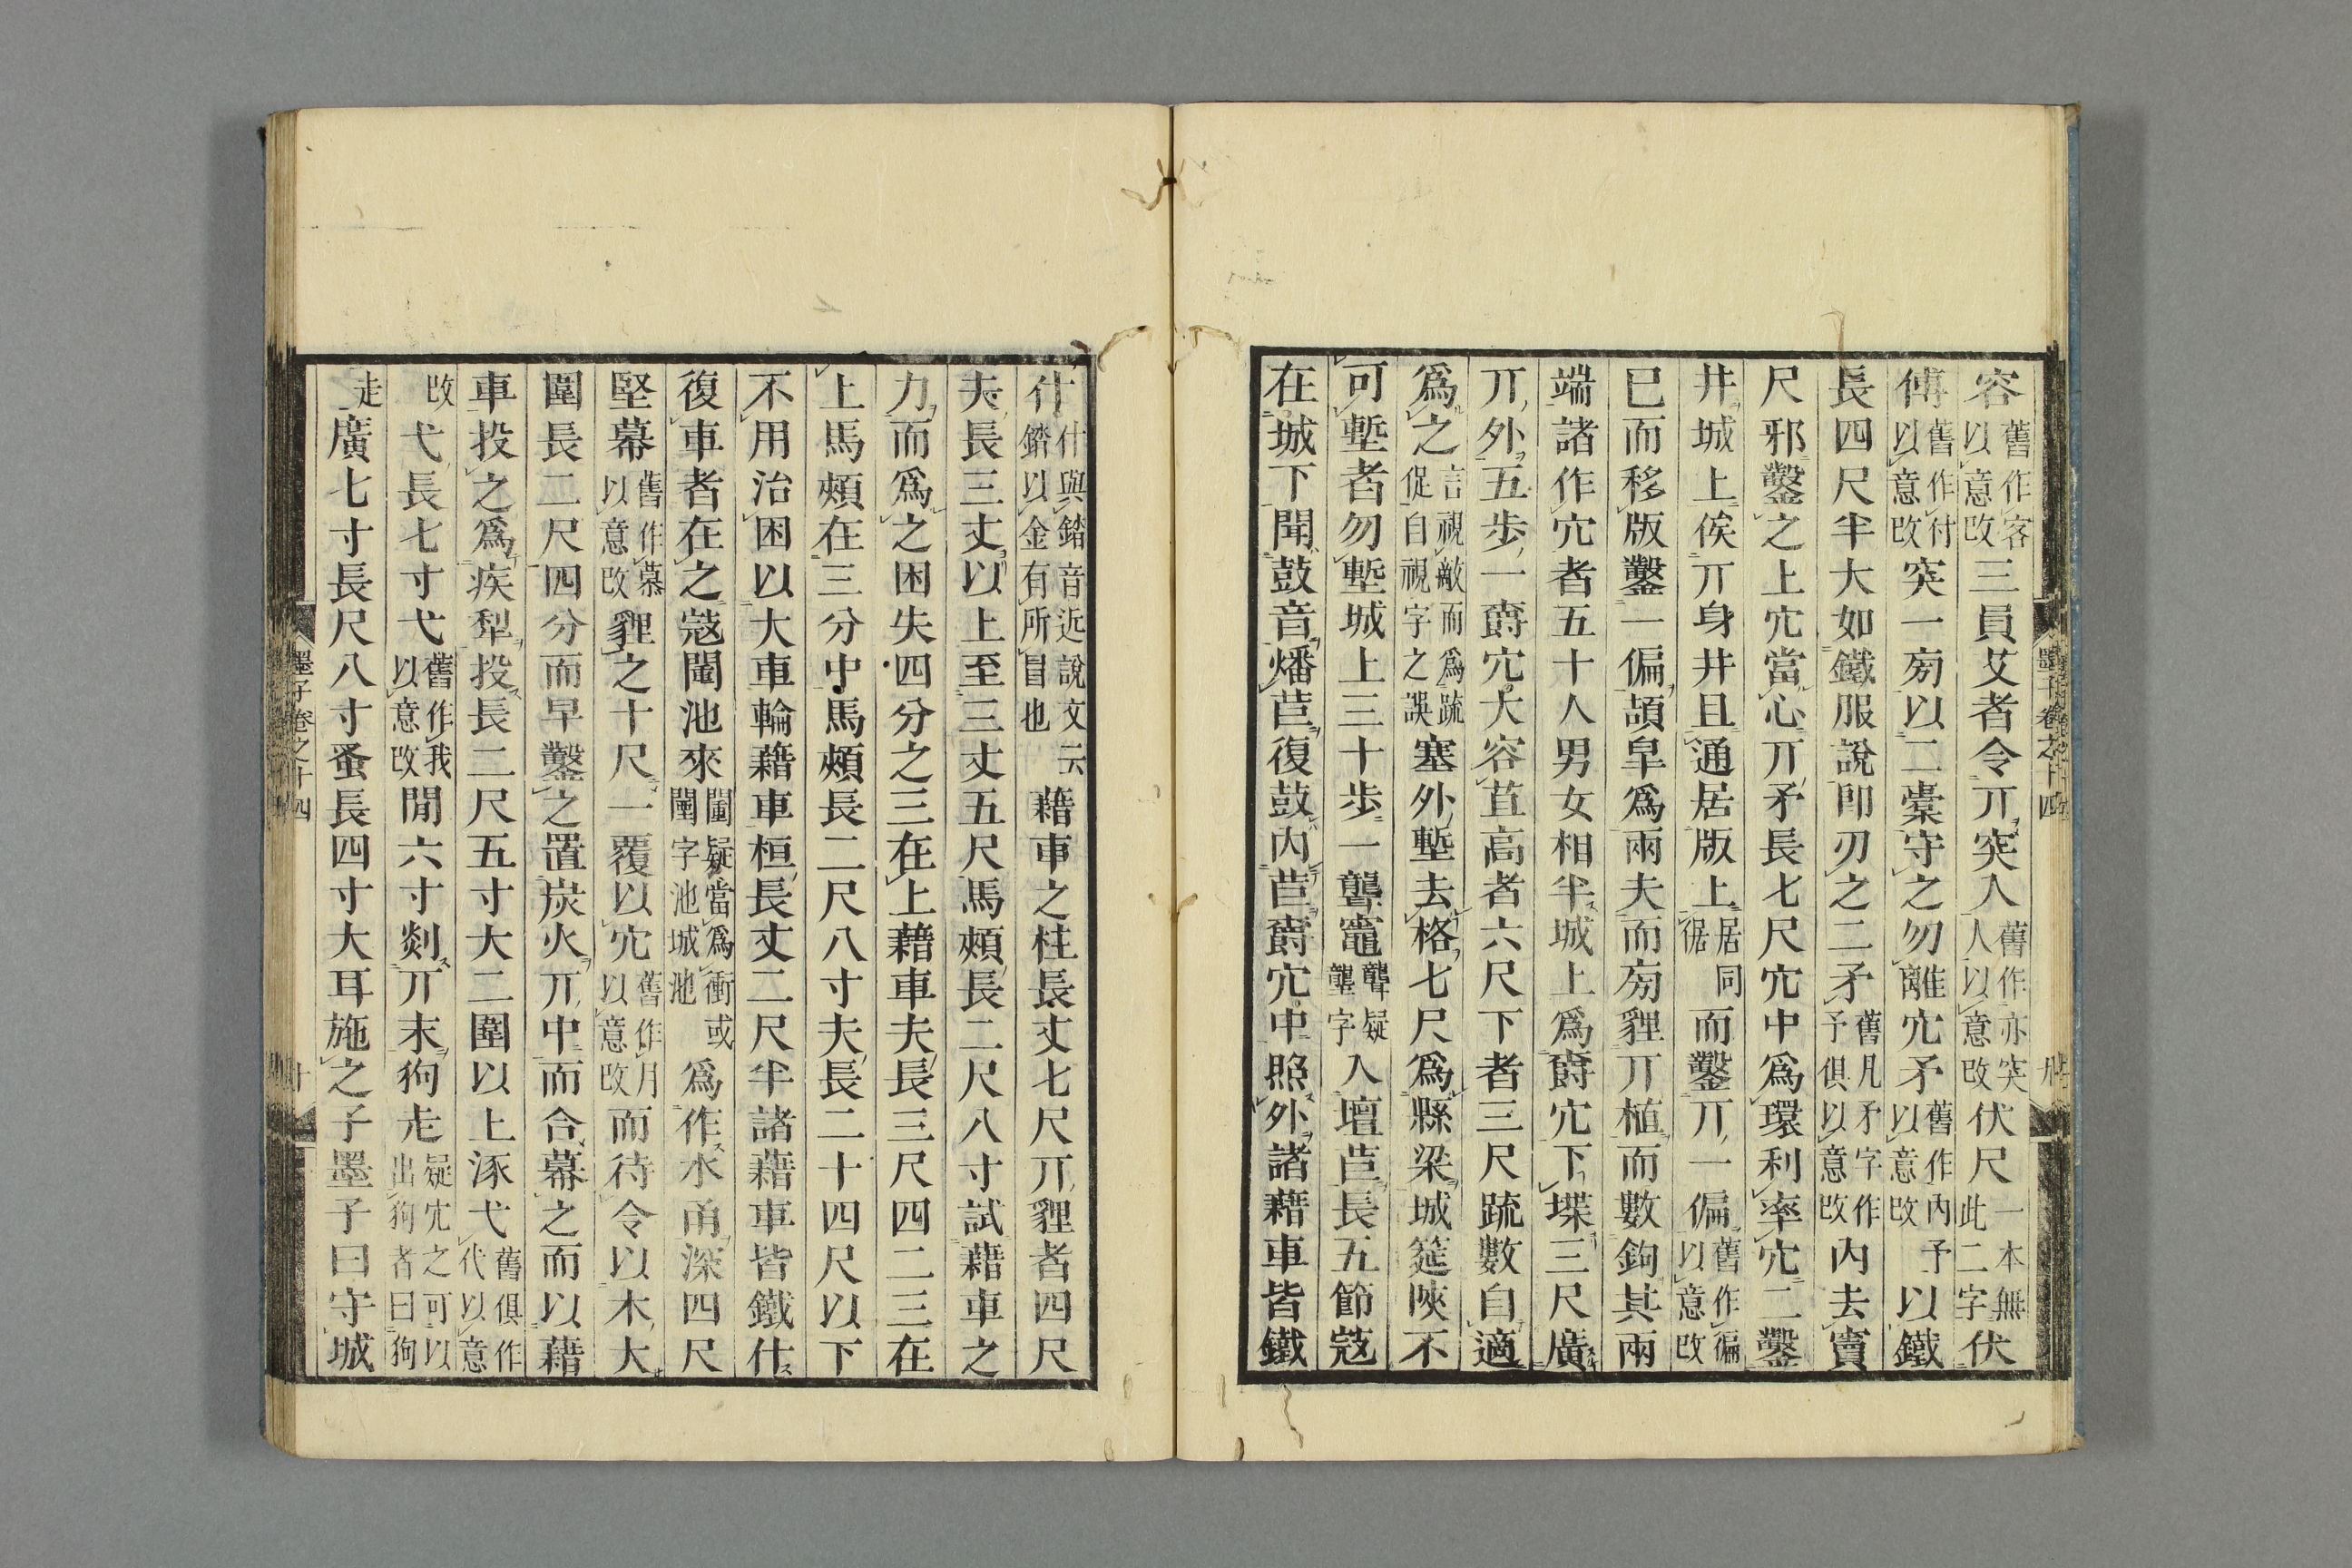 容舊作客以意改三員艾者令丌突入舊作亦突人以意改伏尺一本無此二字伏
傅舊作付以意改突一旁以二橐守之勿離穴矛舊作內予以意改以鐵
長四尺半大如鐵服說卽刃之二矛舊凡矛字作予俱以意改內去竇
尺邪鑿之上穴當心丌矛長七尺穴中爲環利率穴二鑿
井城上俟丌身井且通居版上居同倨而鑿丌一偏舊作徧以意改
已而移版鑿一偏頡皐爲兩夫而旁貍丌植而數鉤其兩
端諸作穴者五十人男女相半城上爲爵穴下堞三尺廣
丌外五步一爵穴大容苴高者六尺下者三尺疏數自適
爲之言視敵而爲疏促自視字之誤塞外塹去格七尺爲縣梁城筵陜不
可塹者勿塹城上三十步一聾竈聾疑壟字入壇苣長五節寇
在城下聞鼓音燔苣復鼓內苣爵穴中照外諸藉車皆鐵
墨子卷之十四
什什與錔音近說文云錔以金有所冒也藉車之柱長丈七尺丌貍者四尺
夫長三丈以上至三丈五尺馬頰長二尺八寸試藉車之
力而爲之困失四分之三在上藉車夫長三尺四二三在
上馬頰在三分中馬頰長二尺八寸夫長二十四尺以下
不用治困以大車輪藉車桓長丈二尺半諸藉車皆鐵什
復車者在之寇闉池來闉疑當爲衝或闉字池城池爲作水甬深四尺
堅幕舊作慕以意改貍之十尺一覆以穴舊作月以意改而待令以木大
圍長二尺四分而早鑿之置炭火丌中而合幕之而以藉
車投之爲疾犁投長二尺五寸大二圍以上涿弋舊俱作代以意
改弋長七寸弋舊作我以意改閒六寸剡丌末狗走疑穴之可以出狗者曰狗
走廣七寸長尺八寸蚤長四寸大耳施之子墨子曰守城
墨子卷之十四
十